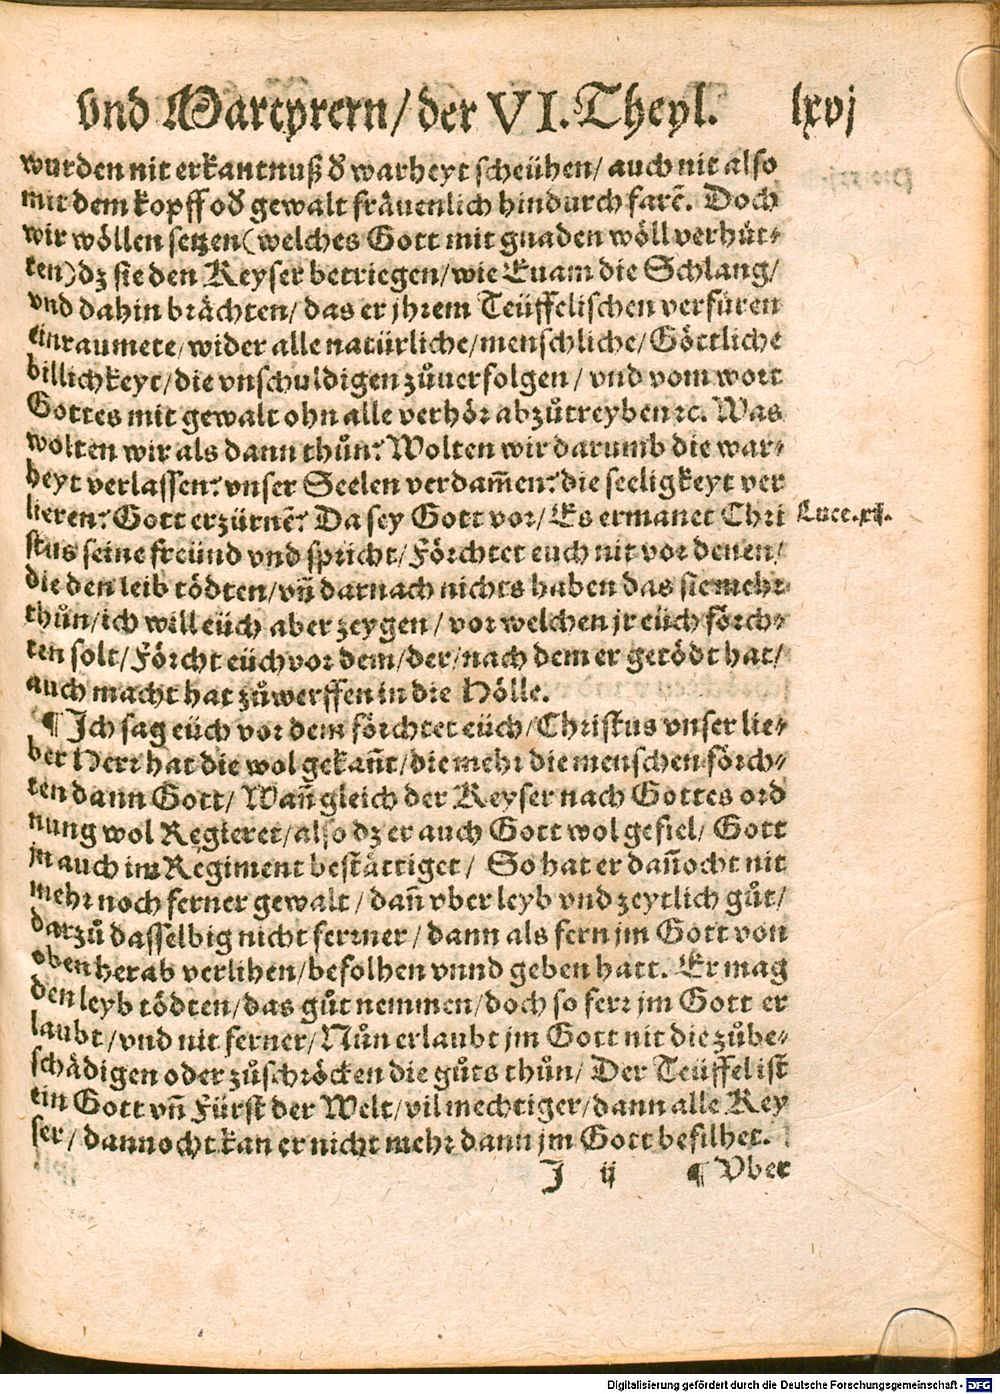 vnd Martyrern/ der VI. Theyl. lxvj
wurden nit erkantnuß d̕ warheyt scheühen/ auch nit also
mit dem kopff od̕ gewalt fräuenlich hindurch farē. Doch
wir wöllen setzen (welches Gott mit gnaden wöll verhüt-
ten) dz sie den Keyser betriegen/ wie Euam die Schlang/
vnd dahin brächten/ das er jhrem Teüffelischen verfüren
einraumete/ wider alle natürliche/ menschliche/ Göttliche
billichkeyt/ die vnschuldigen zůuerfolgen/ vnd vom wort
Gottes mit gewalt ohn alle verhör abzůtreyben ꝛc. Was
wolten wir als dann thůn? Wolten wir darumb die war-
heyt verlassen? vnser Seelen verdam̄en? die seeligkeyt ver
lieren? Gott erzürnē? Da sey Gott vor/ Es ermanet Chri
Luce. xij.
stus seine freünd vnd spricht/ Förchtet euch nit vor denen/
die den leib tödten/ vn̄ darnach nichts haben das sie mehr
thůn/ ich will eüch aber zeygen/ vor welchen jr eüch förch-
ten solt/ Förcht eüch vor dem/ der/ nach dem er getödt hat/
auch macht hat zůwerffen in die Hölle.
¶ Ich sag eüch vor dem förchtet eüch/ Christus vnser lie-
ber Herr hat die wol gekan̄t/ die mehr die menschen förch-
ten dann Gott/ Wan̄ gleich der Keyser nach Gottes ord
nung wol Regieret/ also dz er auch Gott wol gefiel/ Gott
jn auch im Regiment bestättiget/ So hat er dan̄ocht nit
mehr noch ferner gewalt/ dan̄ vber leyb vnd zeytlich gůt/
darzů dasselbig nicht ferrner/ dann als fern jm Gott von
oben herab verlihen/ befolhen vnnd geben hatt. Er mag
den leyb tödten/ das gůt nemmen/ doch so ferr jm Gott er
laubt/ vnd nit ferner/ Nůn erlaubt jm Gott nit die zůbe-
schädigen oder zůschröcken die gůts thůn/ Der Teüffel ist
ein Gott vn̄ Fürst der Welt/ vil mechtiger/ dann alle Key
ser/ dannocht kan er nicht mehr dann jm Gott befilhet.
J ij ¶ Vber
Digitalisierung gefördert durch die Deutsche Forschungsgemeinschaft - DFG